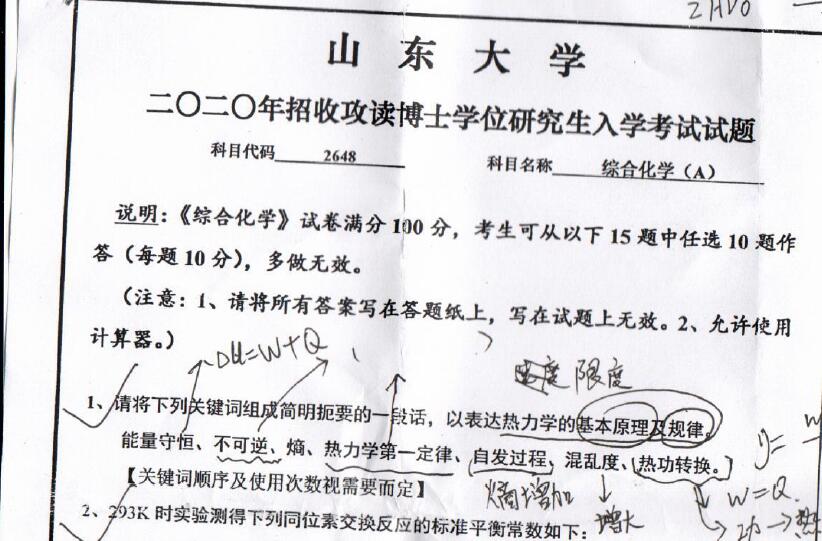 ZHVO
山 东 大 学
二〇二〇年招收攻读博士学位研究生入学考试试题
科目代码 2648 科目名称 综合化学（A）
说明：《综合化学》试卷满分 100 分，考生可从以下 15 题中任选 10 题作
答（每题 10 分），多做无效。
（注意：1、请将所有答案写在答题纸上，写在试题上无效。2、允许使用
计算器。）
ΔU=W+Q
度 限度
1、请将下列关键词组成简明扼要的一段话，以表达热力学的基本原理及规律。
能量守恒、不可逆、熵、热力学第一定律、自发过程、混乱度、热功转换。
η=
W=Q
【关键词顺序及使用次数视需要而定】
熵增加
增大
功→热
2、293K 时实验测得下列同位素交换反应的标准平衡常数如下：